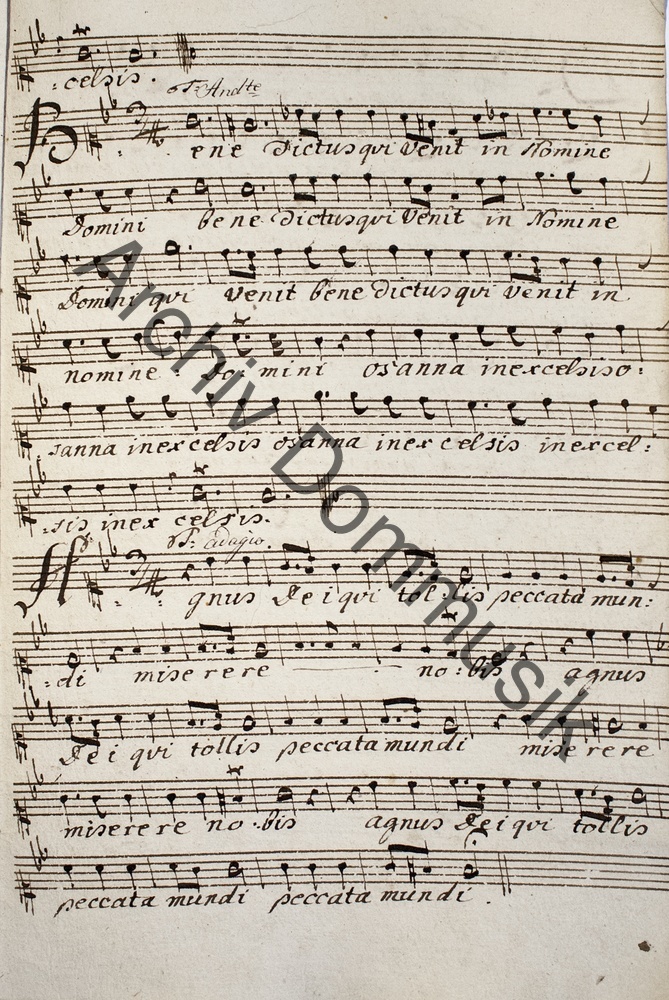 -celsis.
T: Andte
Bene Dictus qui Venit in Nomine
Domini bene dictus qui Venit in Nomine
Domini qui Venit bene dictus qui Venit in
nomine Do: mini osanna inexcelsis o:
sanna inexcelsis osanna inexcelsis inexcel:
-sis inex celsis.
T: Adagio.
Agnus Dei qui tol:lis peccata mun:
-di miserere no:bis agnus
Dei qui tollis peccata mundi miserere
miserere no:bis agnus Dei qui tollis
peccata mundi peccata mundi.
Archiv Dommusik